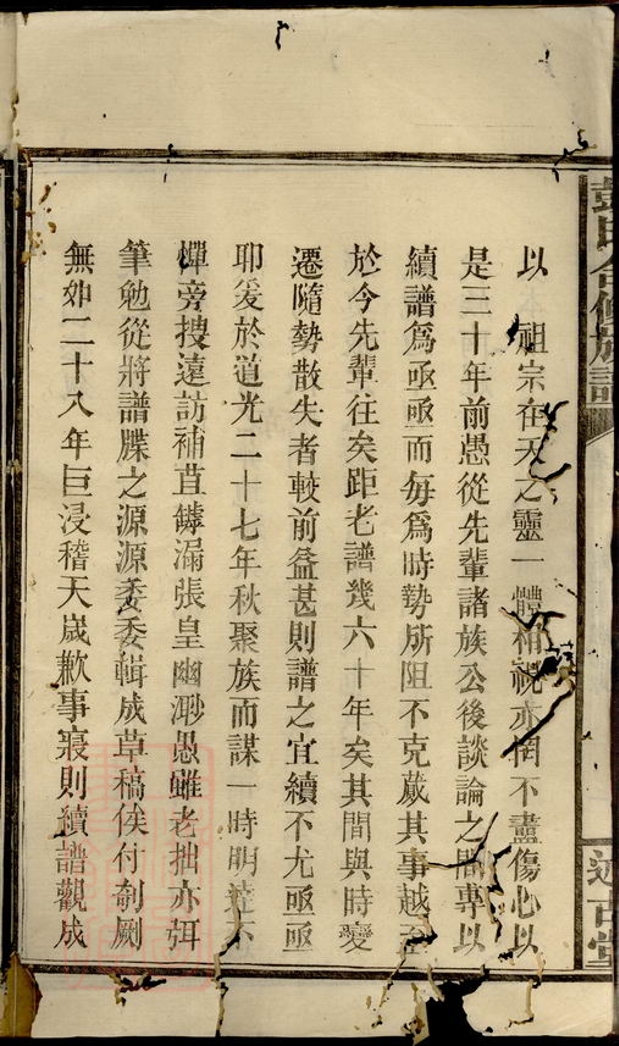 彭氏合修族譜
述古堂
以 祖宗在天之靈一體相視亦罔不盡傷心以
是三十年前愚從先輩諸族公後談論之間專以
續譜爲亟亟而每爲時勢所阻不克蕆其事越至
於今先輩往矣距老譜幾六十年矣其間與時變
遷隨勢散失者較前益甚則譜之宜續不尤亟亟
耶爰於道光二十七年秋聚族而謀一時明達不
憚旁搜遠訪補苴罅漏張皇幽渺愚雖老拙亦弭
筆勉從將譜牒之源源委委輯成草稿俟付剞劂
無如二十八年巨浸稽天歲歉事寢則續譜觀成